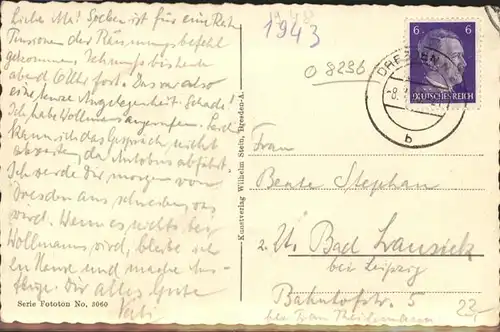 Liebe Ma! Soeben ist für eine Reihe
Pensionen der Räumungsbefehl
gekommen,
abend 6 Uhr fort. Das war also
eine kurze Angelegenheit. Schade!
Ich habe Wollmanns angerufen.
kann ich das Gespräch nicht
abwarten, da Autobus abfährt.
Ich werde dir morgen von
Dresden aus schreiben, was
wird. Wenn es nichts bei
Wollmanns wird, bleibe ich
und mache Aus-
flüge. Dir alles Gute
Vati
Serie Fototon No. 3060
Kunstverlag Wilhelm Stein, Dresden-A.
1943
O 8236
DRESDEN
8.
b
6 6
DEUTSCHES REICH
Frau
Beate Stephan
z. Zt. Bad Lausick
bei Leipzig
Bahnhofstr. 5
bei Frau
23,-